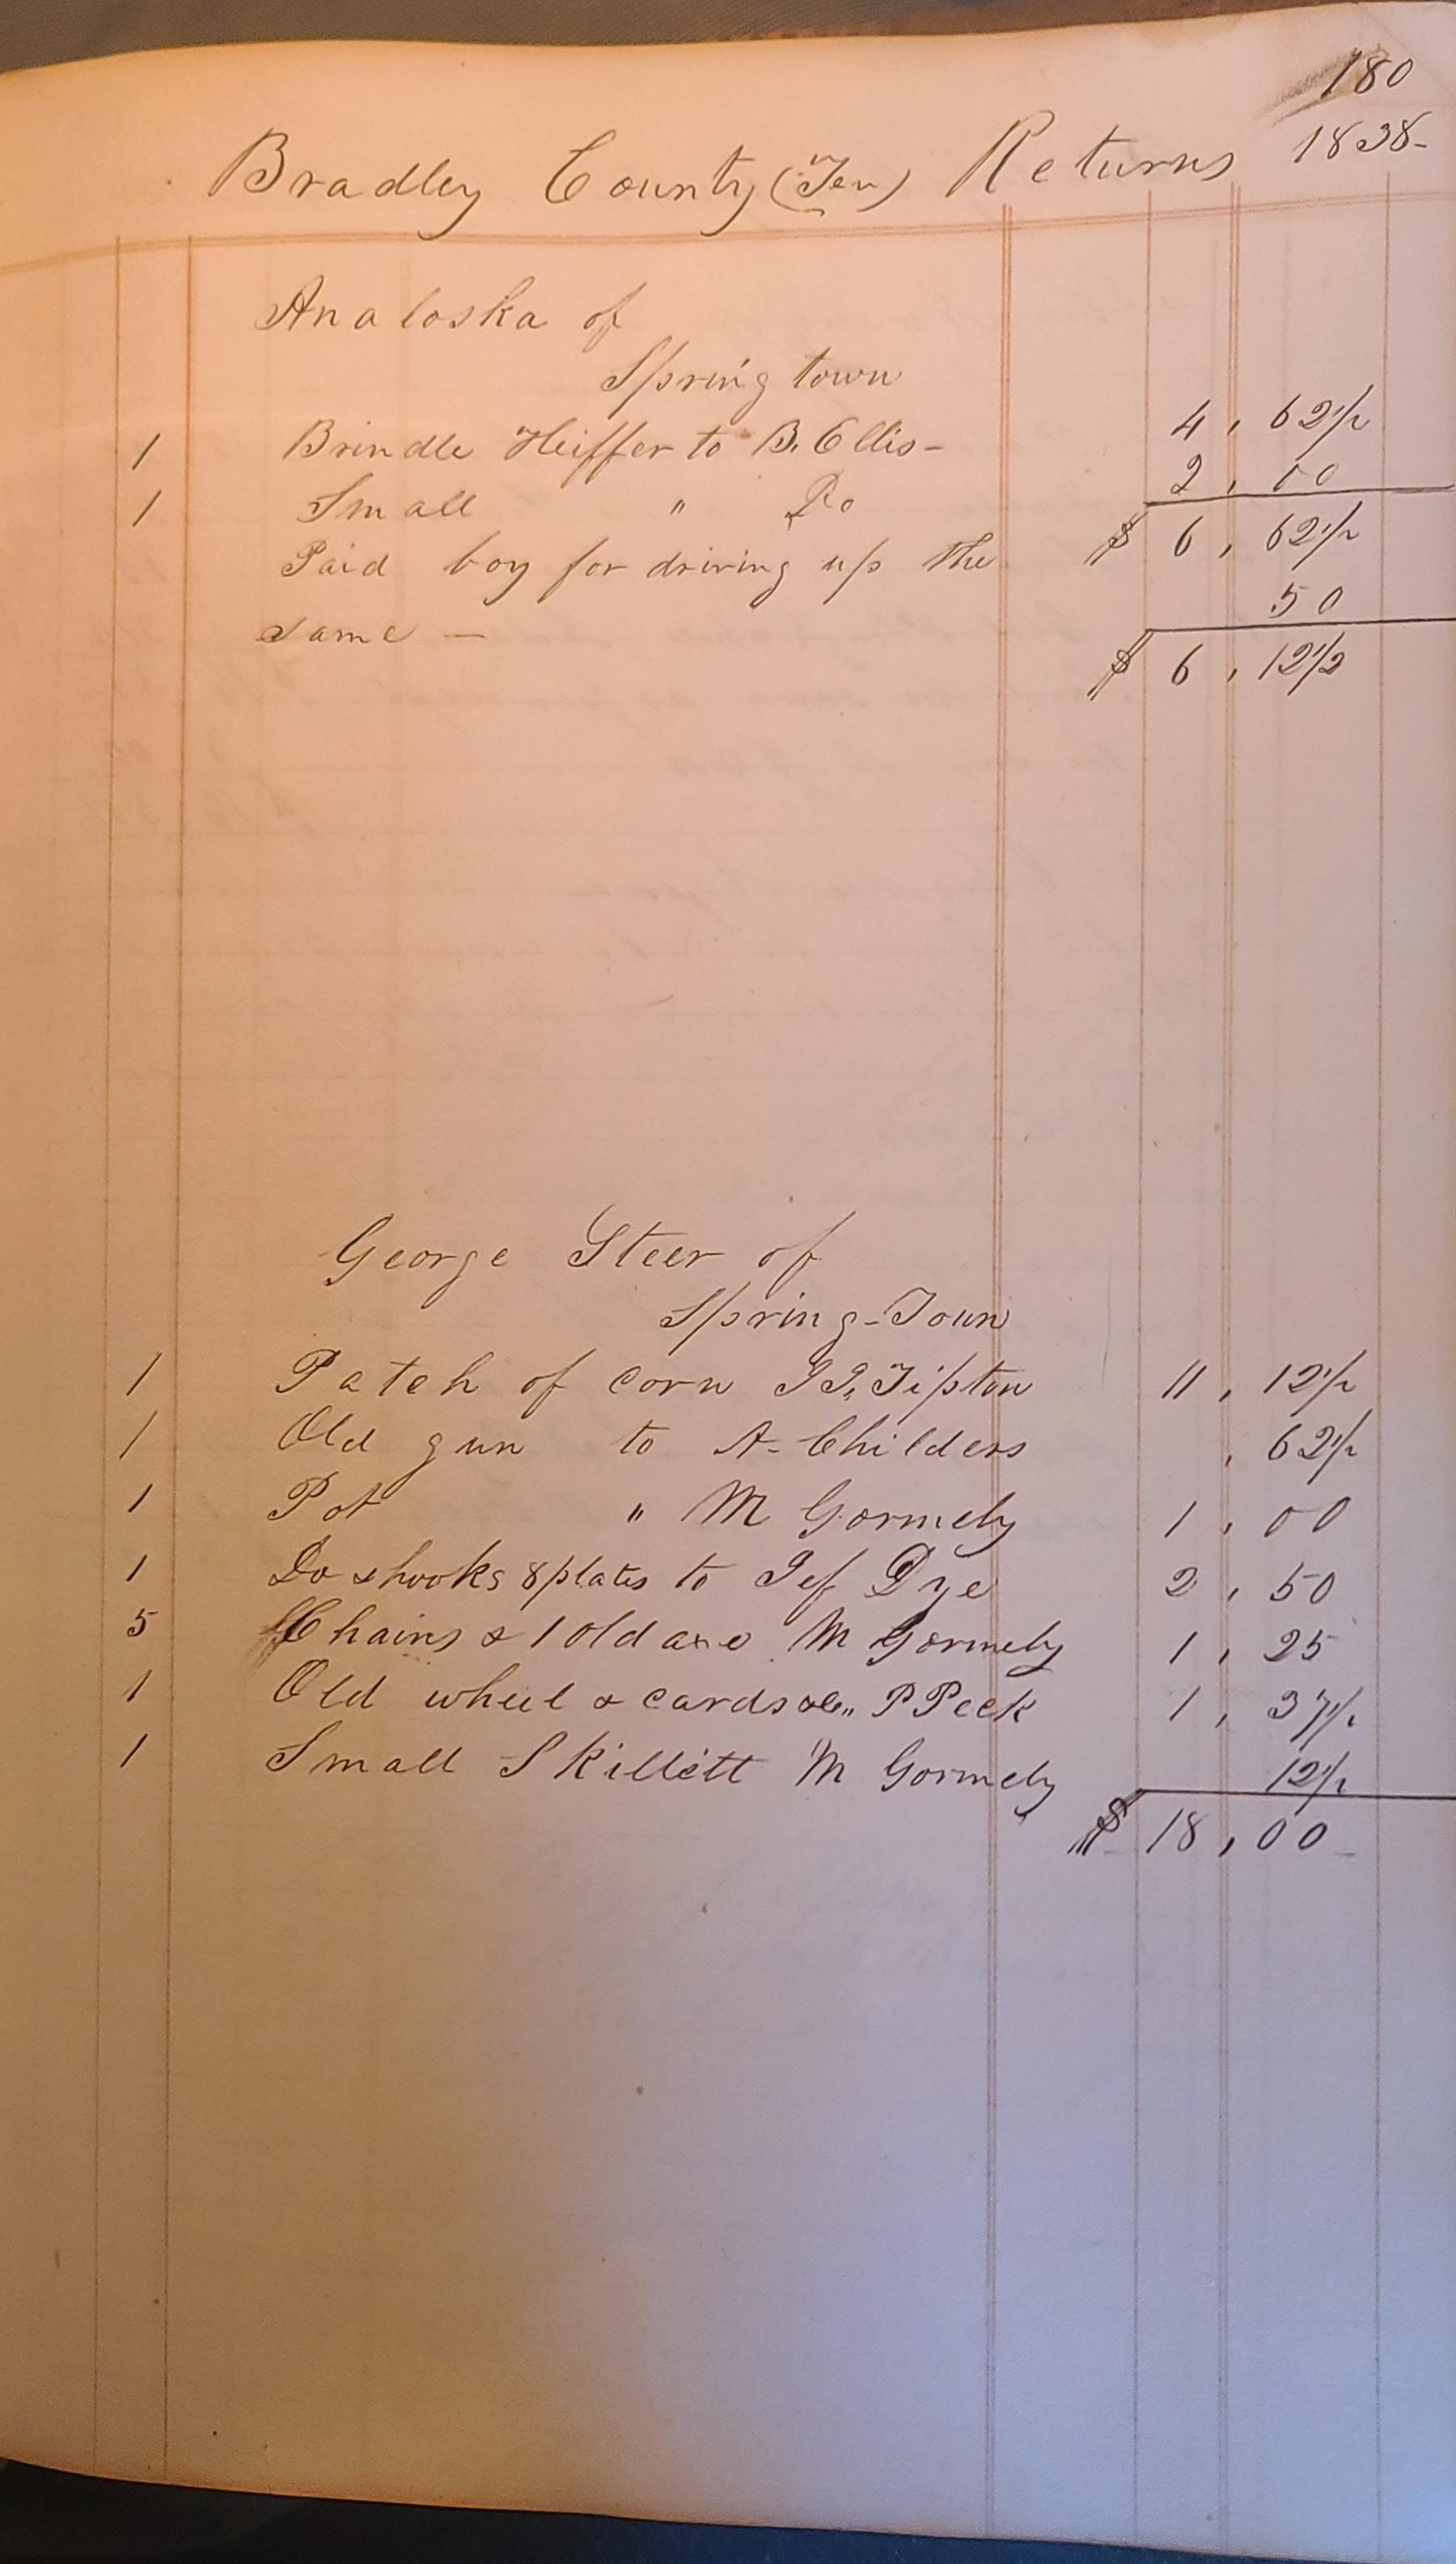 180
Bradley County (Ten) Returns 1838-
Analoska of
Spring town
1 Brindle Heiffer to B. Ellis- 4, 62 1/2
1 Small " Do 2, 00
$ 6, 62 1/2
Paid boy for driving up the
same — 50
$ 6, 12 1/2
George Steer of
Spring-Town
1 Patch of corn J J. Tipton 11, 12 1/2
1 Old gun to A- Childers , 62 1/2
1 Pot " M Gormely 1, 00
1 Do & hooks 8 plates to Jef Dye 2, 50
5 Chains & 1 old axe M Gormely 1, 25
1 Old wheel & cards &c " P Peek 1, 37 1/2
1 Small Skillett M Gormely 12 1/2
$ 18, 00